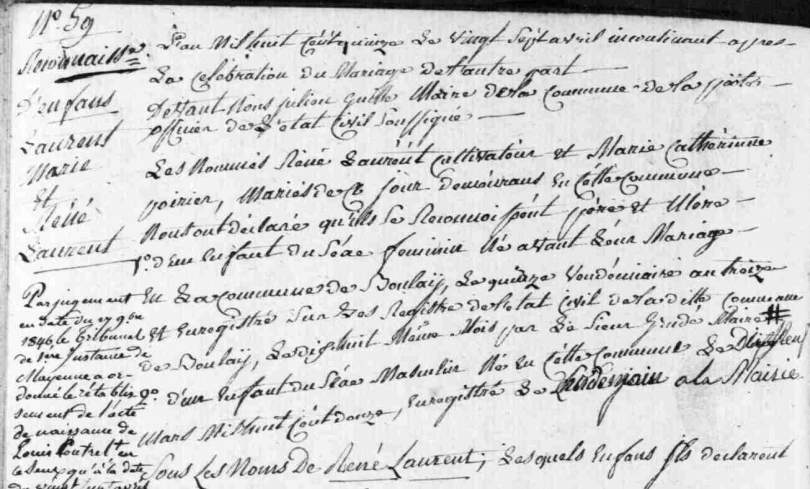 N° 59
Reconnaiss.ce
D'enfans
Laurent
Marie
Et
Réné
Laurent
L'an Mil huit Cent quinze Le vingt Sept avril incontinant apres
La Celebration du Mariage De l'autre part
Devant Nous julien Maire De la Commune De la
officier De L'etat Civil Soussigné
Les Nommés Réné Laurent Cultivateur Et Marie Cathérinne
poirier, Mariés De Ce jour Demeurans En Cette Commune
Nous ont déclaré qu'ils Se Reconnoissent père et Mère
1° D'un Enfant du Séxe féminin Né avant Leur Mariage
En La Commune De Boulay, Le quinze Vendémiaire an treize
Et Enregistré Sur Les Registre de L'etat Civil de la ditte Commune
De Boulay, Le dix huit Même Mois par Le Sieur Maire #
2° D'un Enfant du Séxe Masculin Né En Cette Commune Le
Mars Mil huit Cent douze, Enregistré Le Lendemain a la Mairie
Sous Les Noms De René Laurent; Lesquels Enfans Ils déclarent
Par jugement
en date du 27 9bre
1846, le Tribunal
de 1ère Instance de
Mayenne a or-
donné le rétablis-
sement de l'acte
de naissance de
Louis